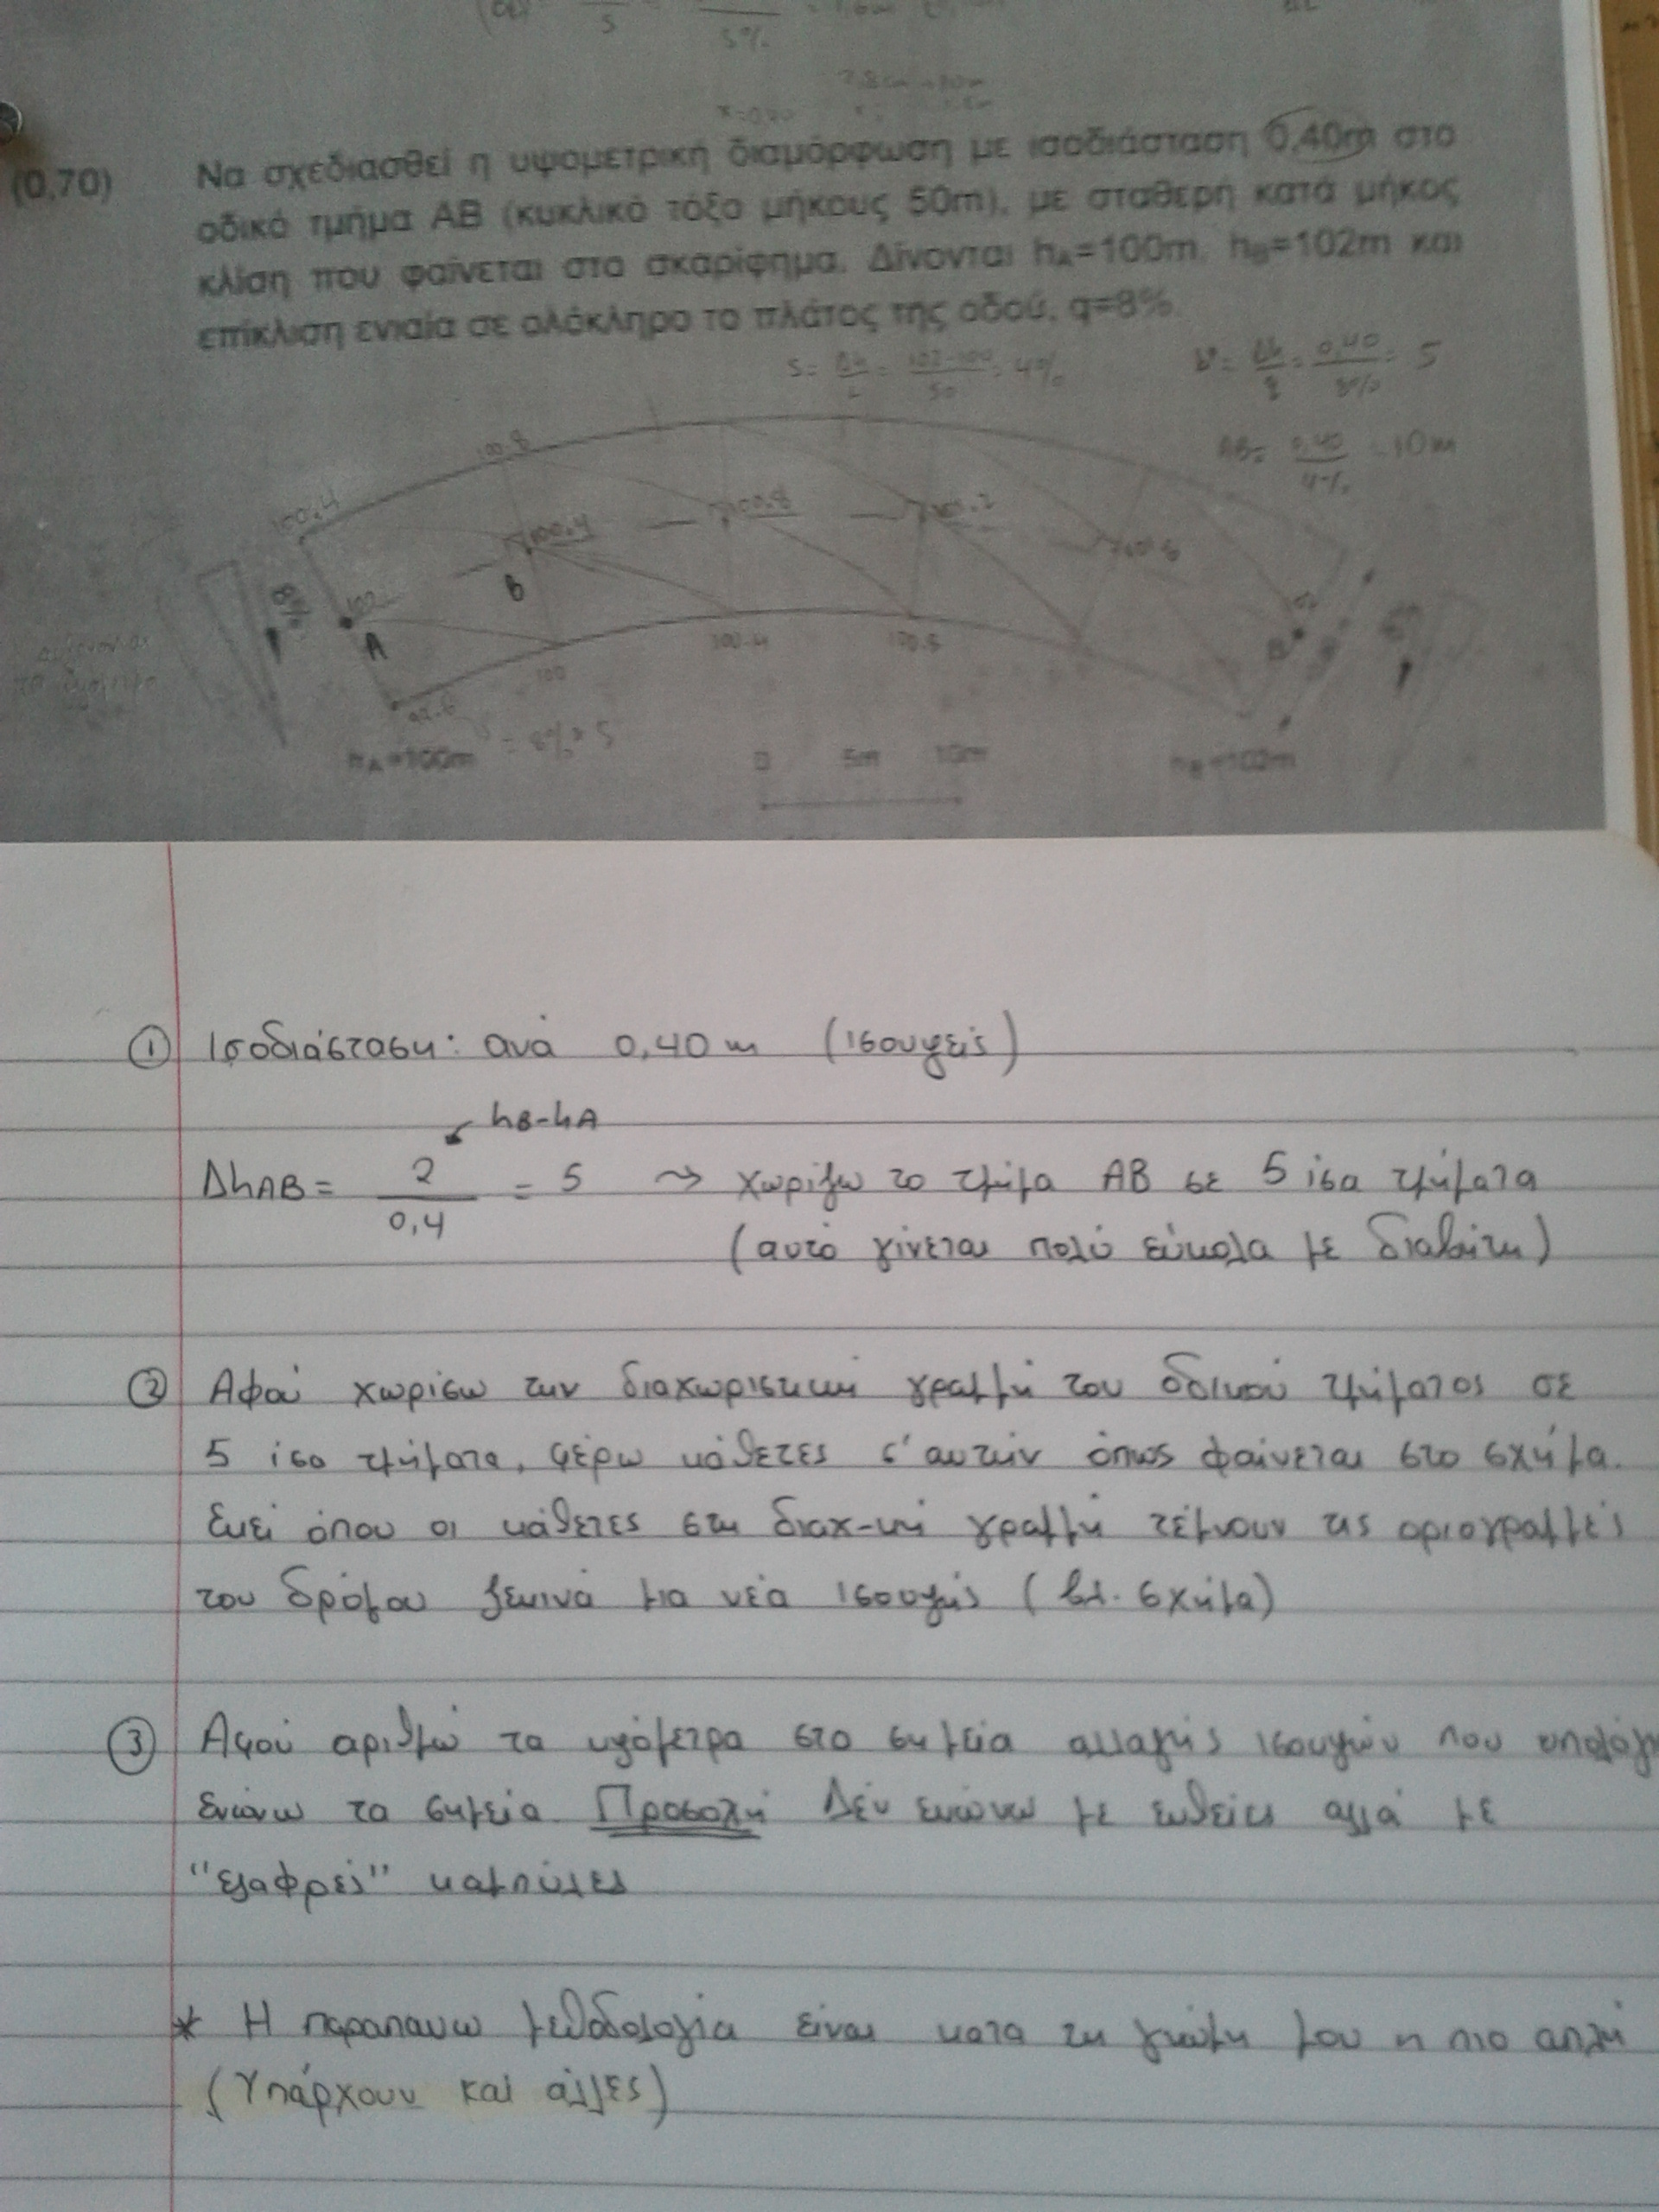 5%
(0,70) Να σχεδιασθεί η υψομετρική διαμόρφωση με ισοδιάσταση 0,40m στο
οδικό τμήμα ΑΒ (κυκλικό τόξο μήκους 50m), με σταθερή κατά μήκος
κλίση που φαίνεται στο σκαρίφημα. Δίνονται hA=100m, hB=102m και
επίκλιση ενιαία σε ολόκληρο το πλάτος της οδού, q=8%.
S= Δh/L = 102-100/50 = 4%
= Δh/q = 0,40/8% = 5
AB= 0,40/4% = 10m
100.8
100.4
100.4
100.8
8%
100
A
B
100
100.4
100.8
B
hA=100m
= 8% * 5
0 5m 10m
hB=102m
① Ισοδιάσταση: ανά 0,40 m (ισουψείς)
hB-hA
ΔhAB = 2/0,4 = 5 ⇝ χωρίζω το τμήμα ΑΒ σε 5 ίσα τμήματα
(αυτό γίνεται πολύ εύκολα με διαβήτη)
② Αφού χωρίσω την διαχωριστική γραμμή του οδικού τμήματος σε
5 ίσα τμήματα, φέρω κάθετες σ' αυτήν όπως φαίνεται στο σχήμα.
Εκεί όπου οι κάθετες στη διαχ-κή γραμμή τέμνουν τις οριογραμμές
του δρόμου ξεκινά μια νέα ισουψής (βλ. σχήμα)
③ Αφού αριθμώ τα υψόμετρα στο σημεία αλλαγής ισουψών που
ενώνω τα σημεία Προσοχή Δέν ενώνω με ευθείες αλλά με
"ελαφρεί" καμπύλες
* Η παραπανω μεθοδολογία είναι κατα τη γνώμη μου η πιο απλή
(Υπάρχουν και άλλες)